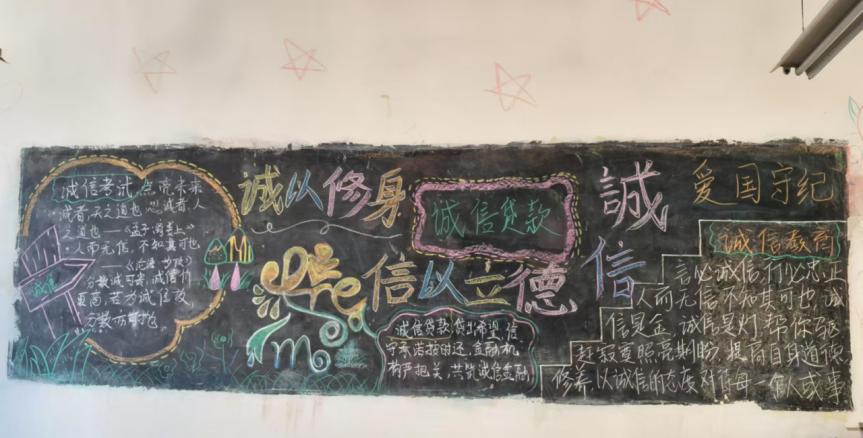 诚信考试,点亮未来
诚者,天之道也,思诚者,人
之道也 ——《孟子·离娄上》
·人而无信,不知其可也
——《论语·
分数诚可贵,诚信价
更高,若为诚信故,
分数亦可抛
诚信
诚以修身
信以立德
诚信贷款
诚信贷款,贷出希望,信
守承诺按时还,金融机
构严把关,共筑诚信金融
誠
信
爱国守纪
诚信教育
言必诚信行必忠正
人而无信不知其可也 诚
信是金,诚信是灯,帮你驱
赶寂寞照亮期盼,提高自身道德
修养,以诚信的态度对待每一个人或事